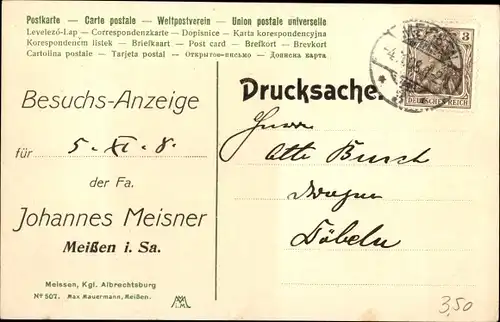 Postkarte — Carte postale — Weltpostverein — Union postale universelle
Levelező-Lap — Correspondenzkarte — Dopisnice — Karta korespondencyjna
Korespondenem listek — Briefkaart — Post card — Brefkort — Brevkort
Cartolina postale — Tarjeta postal — Открытое письмо — Дописна карта
3
DEUTSCHES REICH
Drucksache.
Besuchs-Anzeige
für 5. XI. 8.
der Fa.
Johannes Meisner
Meißen i. Sa.
Herrn
Otto Busch
Döbeln
Meissen, Kgl. Albrechtsburg
No 507. Max Mauermann, Meißen.
3,50